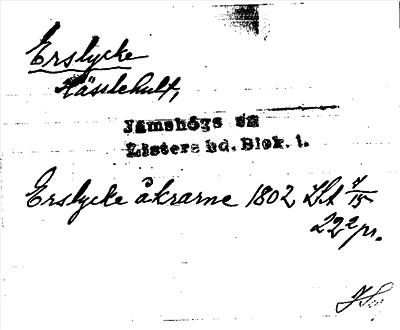 Erslycke
Kässlehult,
Jämshögs sn
Listers hd. Blek. l.
Erslycke åkrarne 1802 LSA 7/15
22 2/pr.